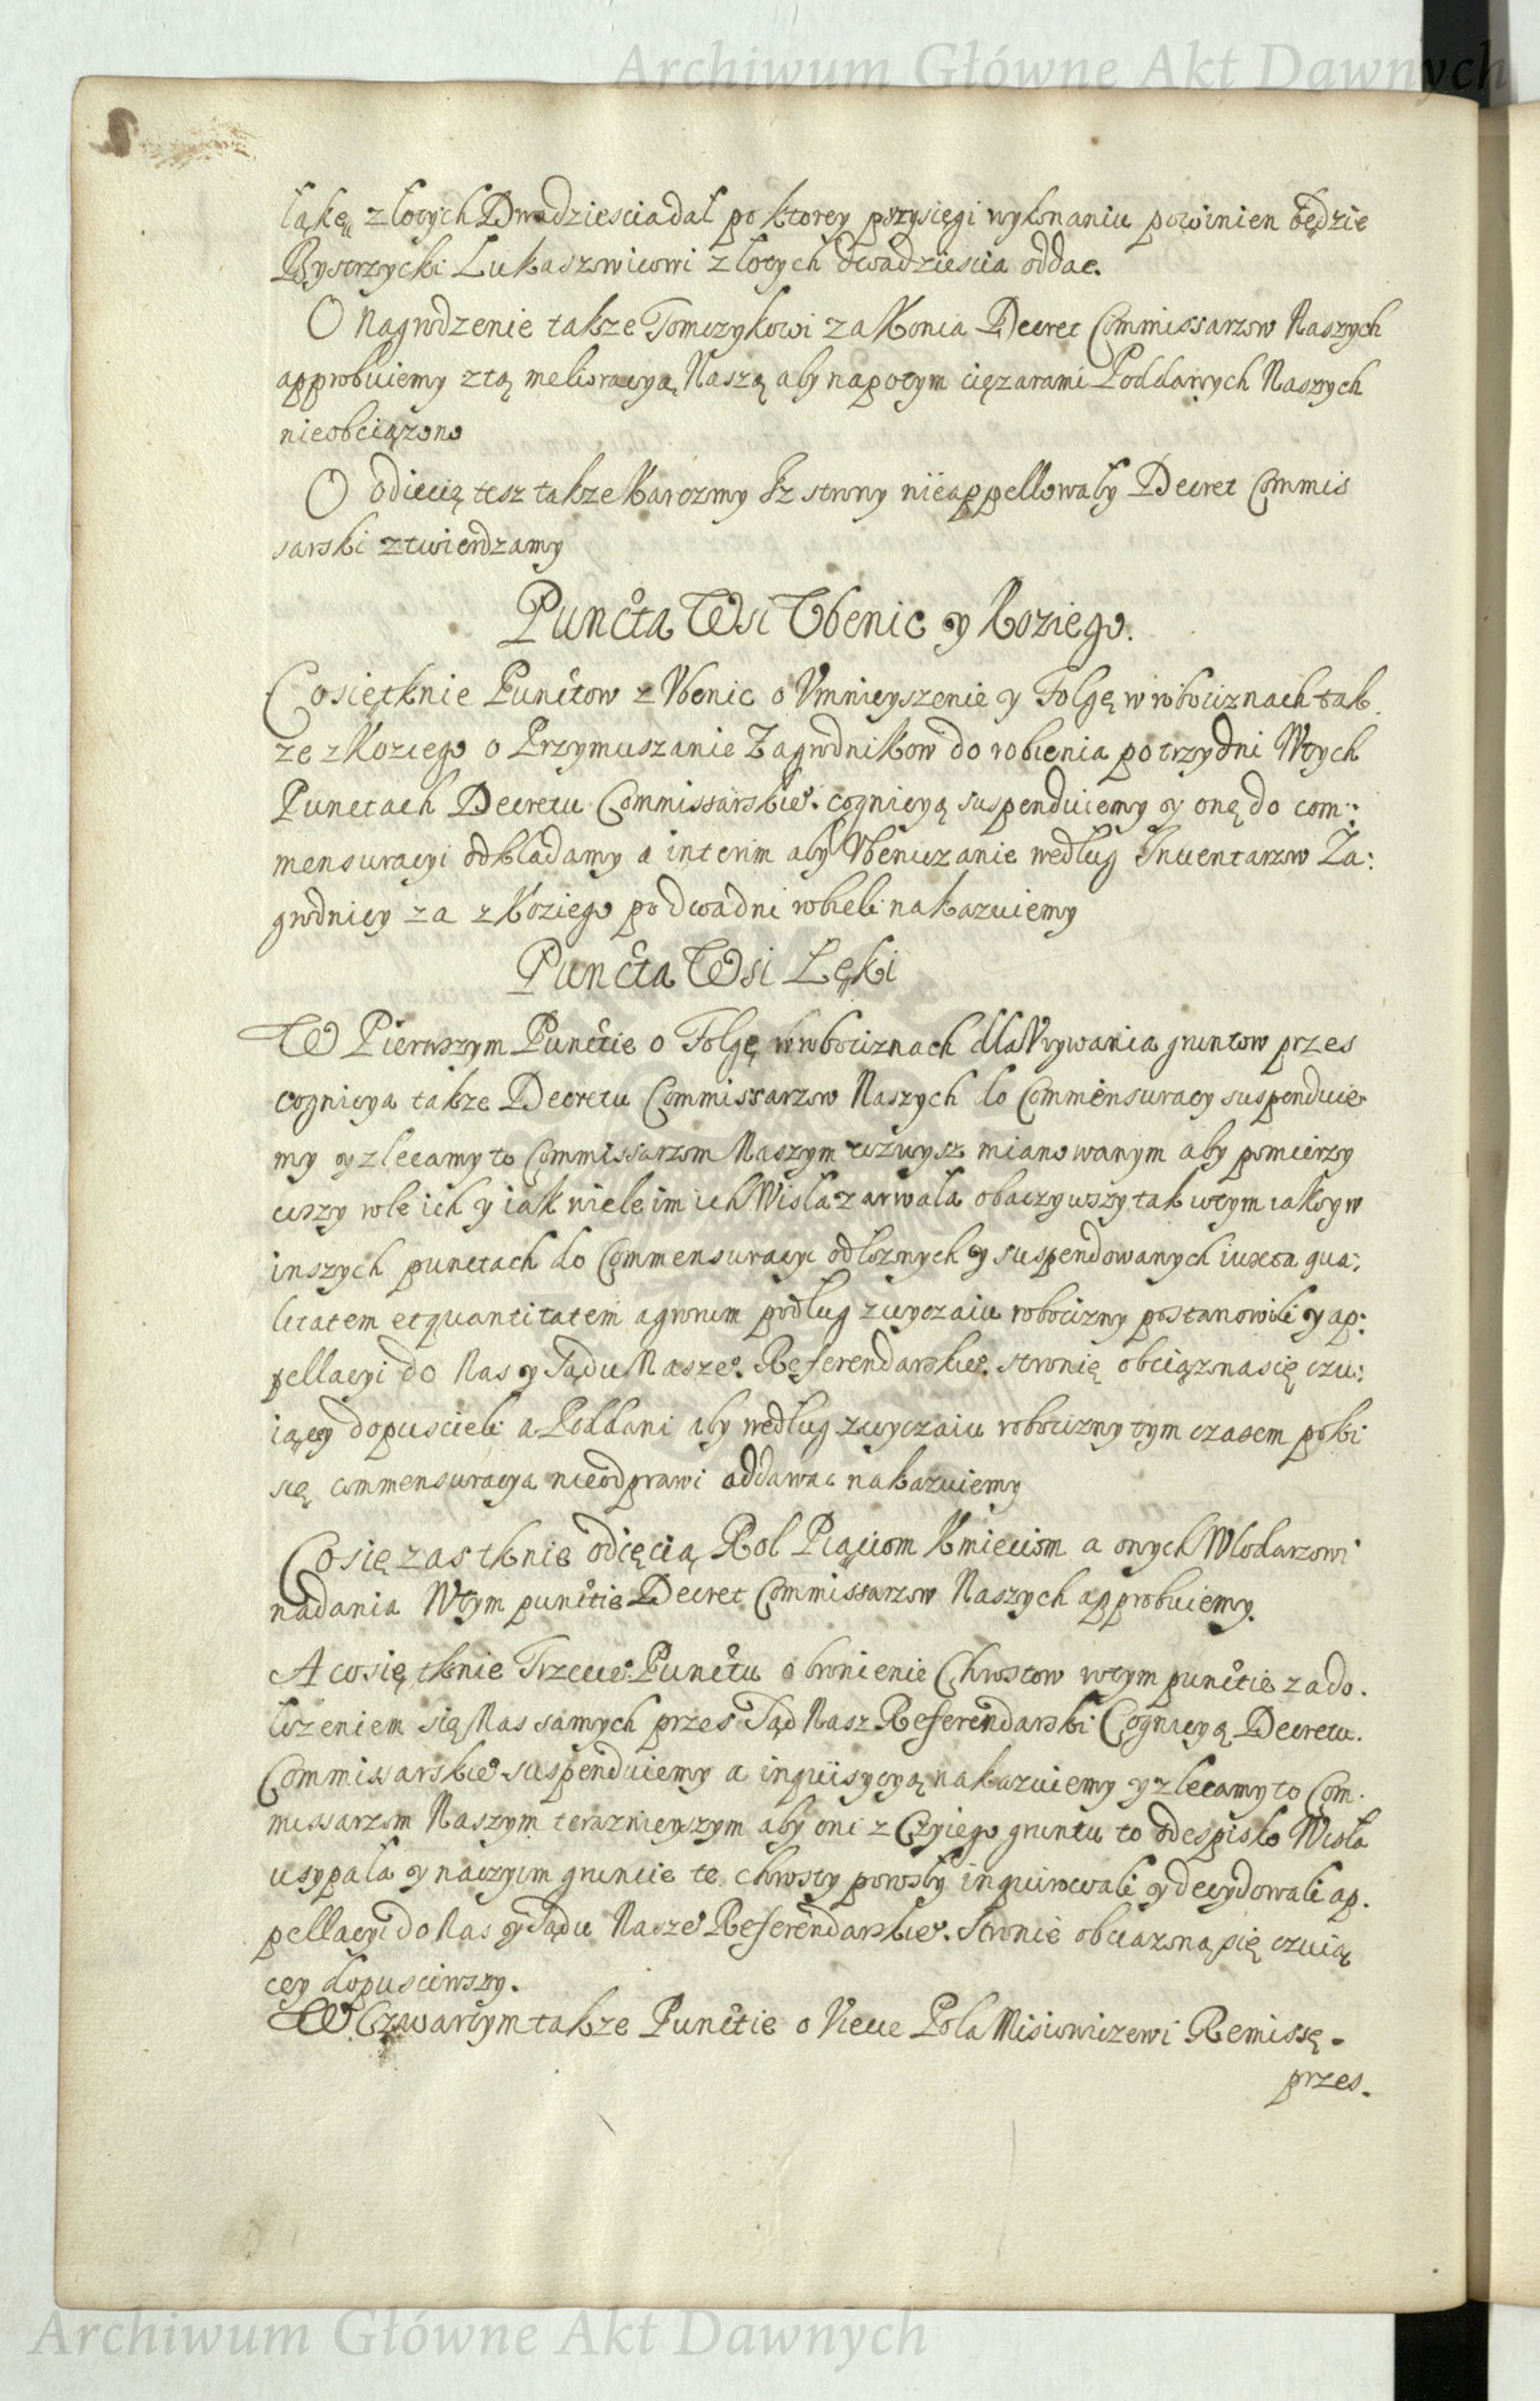 Archiwum Główne Akt Dawnych
łąkę złotych Dwadziescia dał po ktorey przysięgi wykonaniu powinien będzie
Bystrzycki Lukaszowicowi złotych dwadziescia oddac.
O Nagrodzenie także Tomczykowi za Konia Decret Commissarzow Naszych
approbuiemy z tą melioracyą Naszą aby napotym ciężarami Poddanych Naszych
nieobciążono
O odięcią tesz także Karczmy Iz strony nieappellowały Decret Commis
sarski ztwierdzamy
Puncta Wsi Vbenic y Koziego.
Co się tknie Punctow z Vbenic o Vmnieyszenie y Folgę w robociznach tak
ze z Koziego o Przymuszanie Zagrodnikow do robienia po trzy dni W tych
Punctach Decretu Commissarskieo. cognicyą suspenduiemy y onę do com:
mensuracyi odkładamy a interim aby Vbeniczanie według Inuentarzow Za:
grodnicy za z Koziego po dwa dni robieli nakazuiemy
Puncta Wsi Łęki
W Pierwszym Punctie o Folgę w robociznach dla Vrywania gruntow przes
cognicya także Decretu Commissarzow Naszych do Commensuracy suspenduie
my y zlecamy to Commissarzom Naszym zwysz mianowanym aby pomierzy
wszy role ich y iak wiele im ich Wisła zarwała obaczywszy tak w tym iako y w
inszych punctach do Commensuracyi odłożonych y suspendowanych iuxta qua:
litatem et quantitatem agrorum podług zwyczaiu robocizny postanowili y ap:
pellacyi do Nas y Sądu Naszeo. Referendarskieo. stronię obciążona się czu:
iącey dopuscieli a Poddani aby według zwyczaiu robocizny tym czasem poki
się commensuracya nieodprawi oddawac nakazuiemy
Co się zas tknie odięcią Rol Piąciom Kmieciom a onych Włodarzowi
nadania W tym punctie Decret Commissarzow Naszych approbuiemy.
A co się tknie Trzecieo. Punctu o bronienie Chrostow w tym punctie z ado.
łożeniem się Nas samych przes Sąd Nasz Referendarski Cognicyą Decretu.
Commissarskieo suspenduiemy a inquisycyą nakazuiemy y zlecamy to Com.
missarzom Naszym teraznieyszym aby oni z Czyiego gruntu to odespisko Wisła
usypała y na czyim gruncie te chrosty porosły inquirowali y decydowali ap.
pellacyi do Nas y Sądu Naszeo Referendarskieo. Stronie obciazoną się czuią
cey dopusciwszy.
W Czwartym także Punctie o Vięcie Pola Misiowiczewi Remissę.
przes.
Archiwum Główne Akt Dawnych